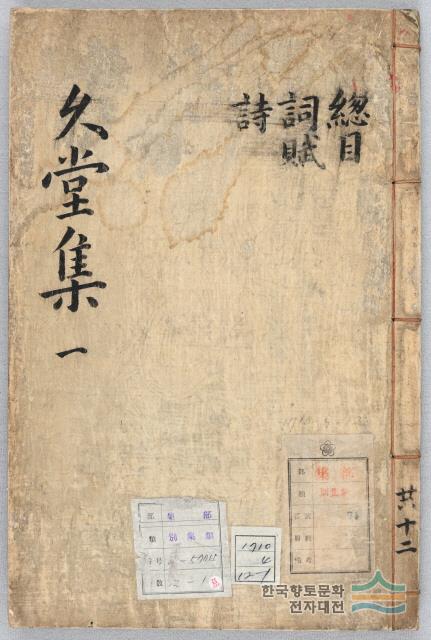 久堂集 一
總目
詞賦
詩
共十二
部 集 部
類 別集類
1710
4
12-1
한국향토문화
전자대전